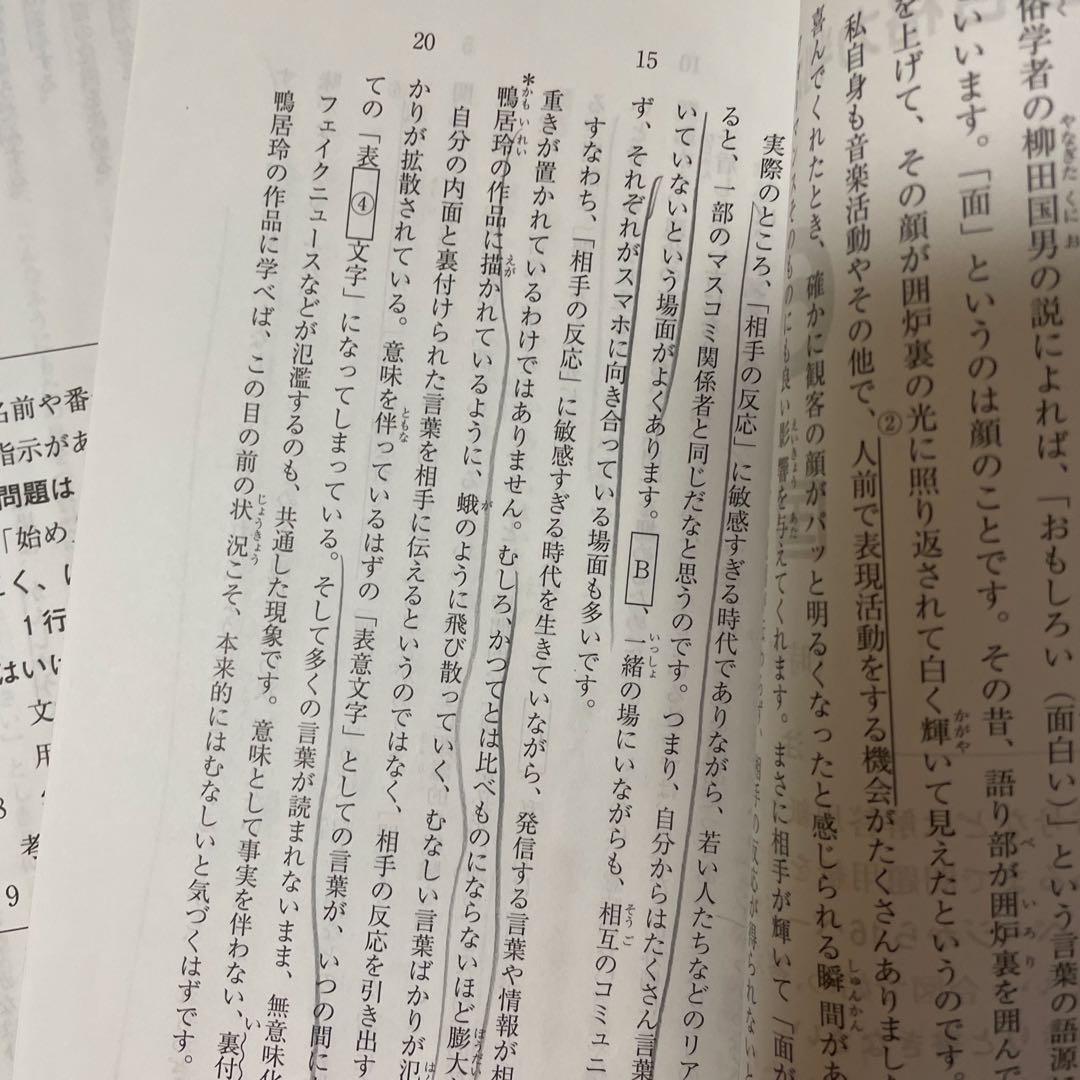 俗学者の柳田国男の説によれば、「おもしろい(面白い)」という言葉の語源
いいます。「面」というのは顔のことです。その昔、語り部が囲炉裏を囲んで
を上げて、その顔が囲炉裏の光に照り返されて白く輝いて見えたというのです。
私自身も音楽活動やその他で、②人前で表現活動をする機会がたくさんありまし
喜んでくれたとき、確かに観客の顔がパッと明るくなったと感じられる瞬間があ
そのものにも良い影響を与えてくれます。まさに相手が輝いて「面が
相手の反応が得られないと
実際のところ、「相手の反応」に敏感すぎる時代でありながら、若い人たちなどのリア
ると、一部のマスコミ関係者と同じだなと思うのです。つまり、自分からはたくさん言葉
いていないという場面がよくあります。 B 、一緒の場にいながらも、相互のコミュニ
15
ず、それぞれがスマホに向き合っている場面も多いです。
すなわち、「相手の反応」に敏感すぎる時代を生きていながら、発信する言葉や情報が相
重きが置かれているわけではありません。むしろ、かつてとは比べものにならないほど膨大
*鴨居玲の作品に描かれているように、蛾のように飛び散っていく、むなしい言葉ばかりが氾
自分の内面と裏付けられた言葉を相手に伝えるというのではなく、相手の反応を引き出す
20
かりが拡散されている。意味を伴っているはずの「表意文字」としての言葉が、いつの間に
ての「表 ④ 文字」になってしまっている。そして多くの言葉が読まれないまま、無意味化
フェイクニュースなどが氾濫するのも、共通した現象です。意味として事実を伴わない、裏付
鴨居玲の作品に学べば、この目の前の状況こそ、本来的にはむなしいと気づくはずです。
名前や番
指示があ
問題は
「始め
1行
はい
文
用
8
考
9